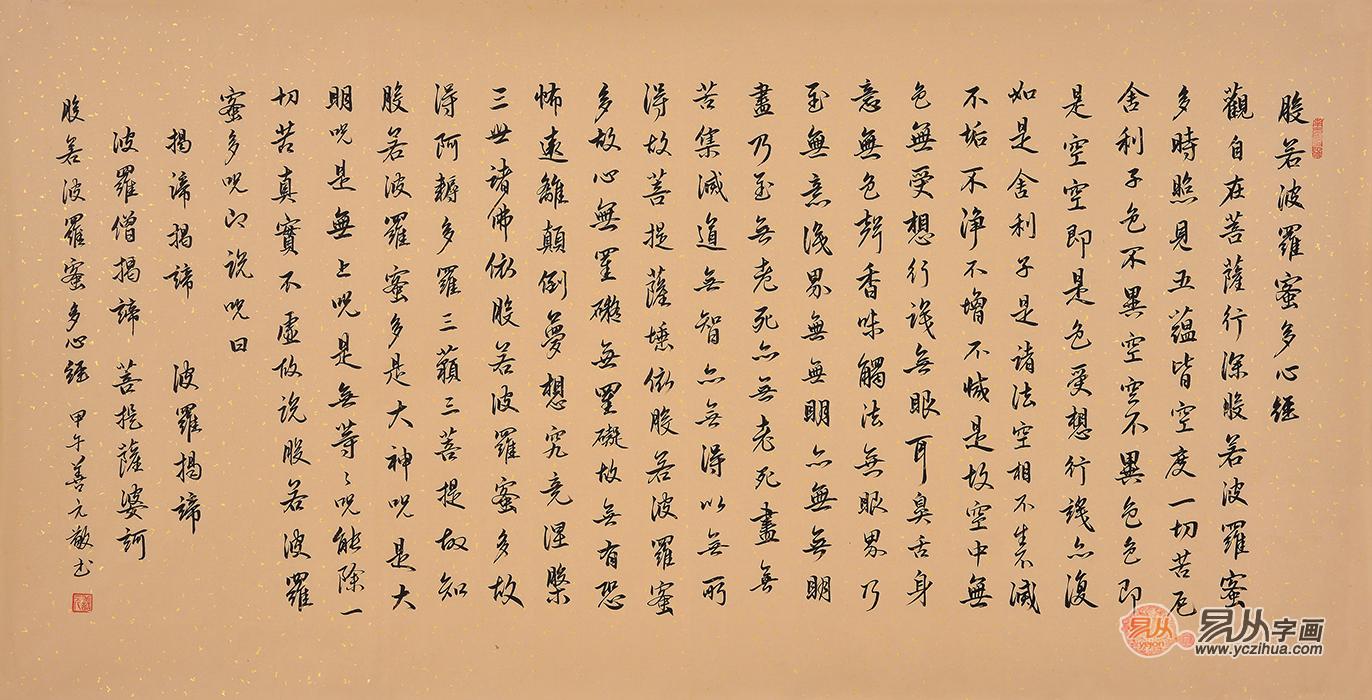 般若波羅蜜多心經
觀自在菩薩行深般若波羅蜜
多時照見五蘊皆空度一切苦厄
舍利子色不異空空不異色色即
是空空即是色受想行識亦復
如是舍利子是諸法空相不生不滅
不垢不淨不增不減是故空中無
色無受想行識無眼耳鼻舌身
意無色聲香味觸法無眼界乃
至無意識界無無明亦無無明
盡乃至無老死亦無老死盡無
苦集滅道無智亦無得以無所
得故菩提薩埵依般若波羅蜜
多故心無罣礙無罣礙故無有恐
怖遠離顛倒夢想究竟涅槃
三世諸佛依般若波羅蜜多故
得阿耨多羅三藐三菩提故知
般若波羅蜜多是大神呪是大
明呪是無上呪是無等〻呪能除一
切苦真實不虛故說般若波羅
蜜多呪即說呪曰
揭諦揭諦 波羅揭諦
波羅僧揭諦 菩提薩婆訶
般若波羅蜜多心經 甲午善元敬书
易从 易从字画
www.yczihua.com